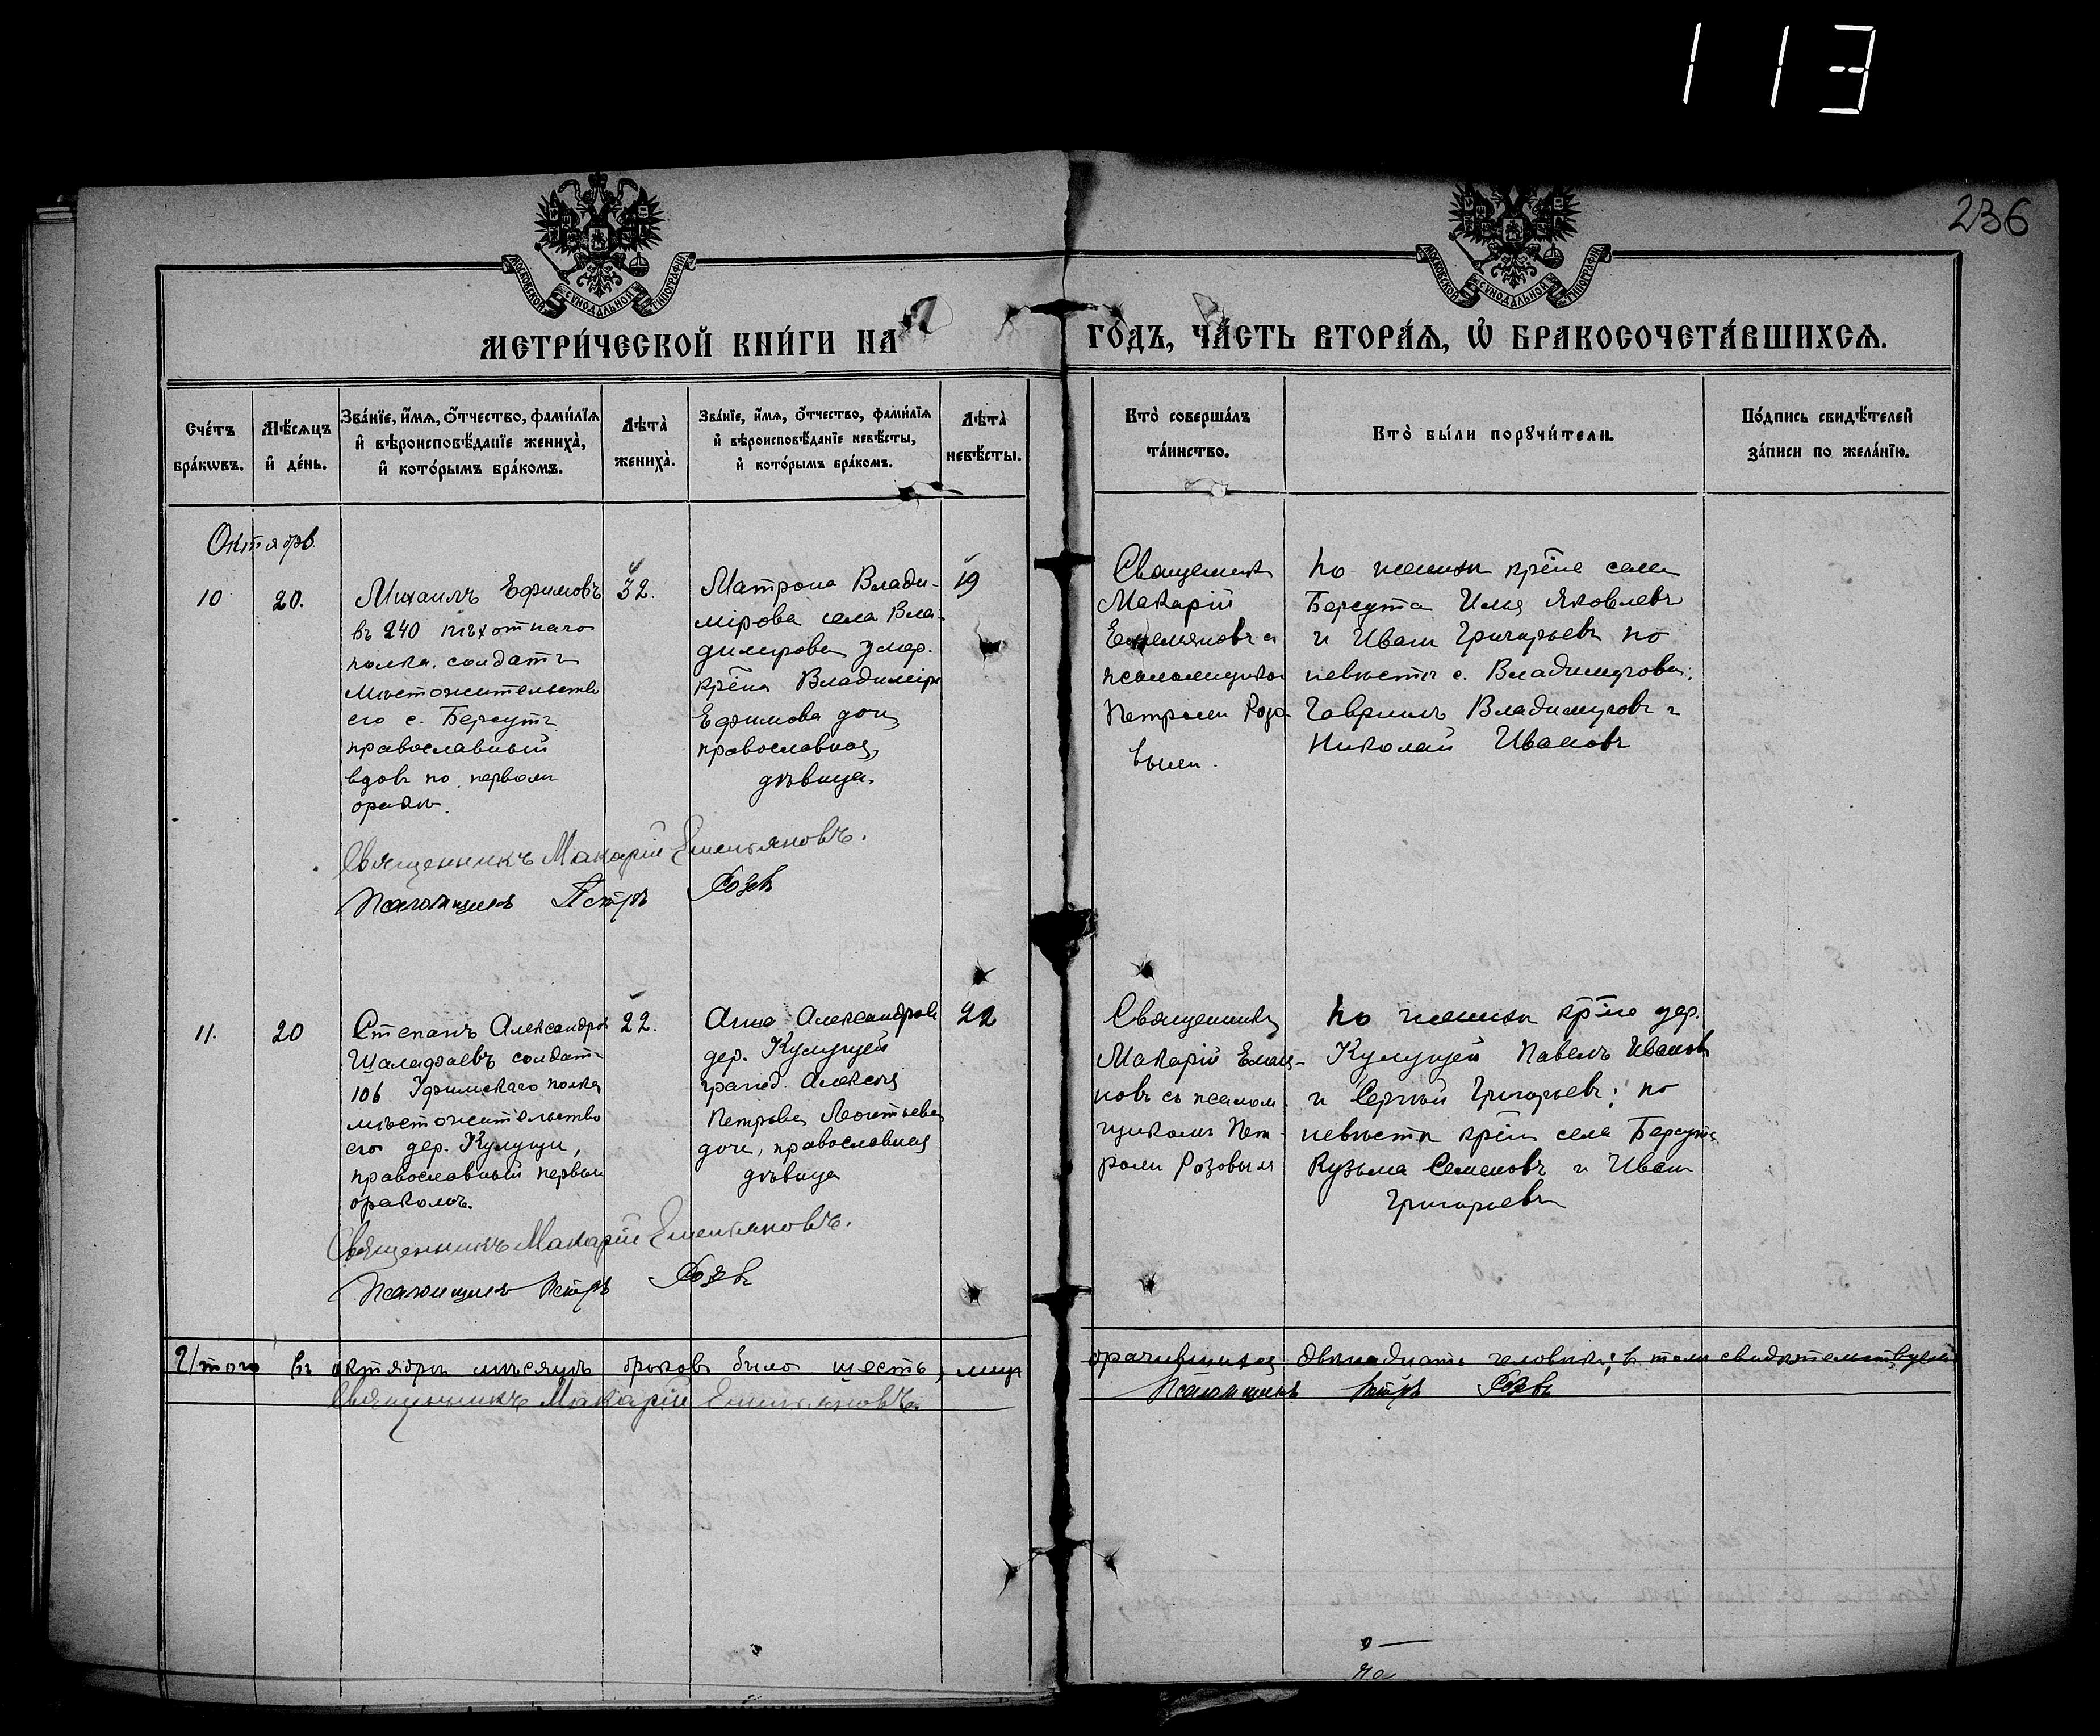 113
236
МОСКОВСКОЙ СѴНОДАЛЬНОЙ ТИПОГРАФІИ
МОСКОВСКОЙ СѴНОДАЛЬНОЙ ТИПОГРАФІИ
МЕТРИ́ЧЕСКОЙ КНИ́ГИ НА ГО́ДЪ, ЧА́СТЬ ВТОРА́Ѧ, Ѡ҆ БРАКОСОЧЕТА́ВШИХСѦ.
Сче́тъ бра́кѡвъ.
Мѣ́сѧцъ и҆ де́нь.
Зва́нїе, и҆́мѧ, ѻ҆́тчество, фами́лїѧ и҆ вѣроисповѣ́данїе жениха̀, и҆ кото́рымъ бра́комъ.
Лѣта̀ жениха̀.
Зва́нїе, и҆́мѧ, ѻ҆́тчество, фами́лїѧ и҆ вѣроисповѣ́данїе невѣ́сты, и҆ кото́рымъ бра́комъ.
Лѣта̀ невѣ́сты.
Кто̀ соверша́лъ та́инство.
Кто̀ бы́ли порꙋчи́тели.
По́дпись свидѣ́телей за́писи по жела́нїю.
Октябрь.
10
20.
Михаилъ Ефимовъ
въ 240 пѣхотнаго
полка, солдатъ
мѣстожительство
его с. Берсутъ
православный
вдовъ по первом
бракѣ.
32.
Матрона Влади-
мірова села Вла-
димірова умер.
крѣна Владиміра
Ефимова дочь,
православная,
дѣвица.
19
Священникъ
Макарій
Емельяновъ съ
псаломщикомъ
Петромъ Розо
вымъ.
по женихѣ крѣне села
Берсута Илья Яковлевъ
и Иванъ Григорьевъ по
невѣстѣ с. Владимірова:
Гавріилъ Владиміровъ и
Николай Ивановъ
Священникъ Макарій Емельяновъ.
Псаломщикъ Петръ Розовъ
11.
20
Степанъ Александров
солдатъ
106 Уфимскаго полка
мѣстожительство
его дер. Кулущи,
православный первым
бракомъ.
22.
Анна Александрова
дер. Кулущей
гражд. Алексѣя
Петрова Леонтьева
дочь, православная
дѣвица
22
Священникъ
Макарій Емелья-
новъ съ псалом-
щикомъ Пет-
ромъ Розовымъ
по женихѣ крѣне дер.
Кулущей Павелъ Ивановъ
и Сергѣй Григорьевъ; по
невѣстѣ крѣне села Берсута
Кузьма Семеновъ и Иванъ
Григорьевъ
Священникъ Макарій Емельяновъ.
Псаломщикъ Петръ Розовъ
Итого въ октябрѣ мѣсяцѣ браковъ было шесть, лицъ брачившихся двѣнадцать человѣкъ; въ томъ свидѣтельствуемъ
Священникъ Макарій Емельяновъ.
Псаломщикъ Петръ Розовъ